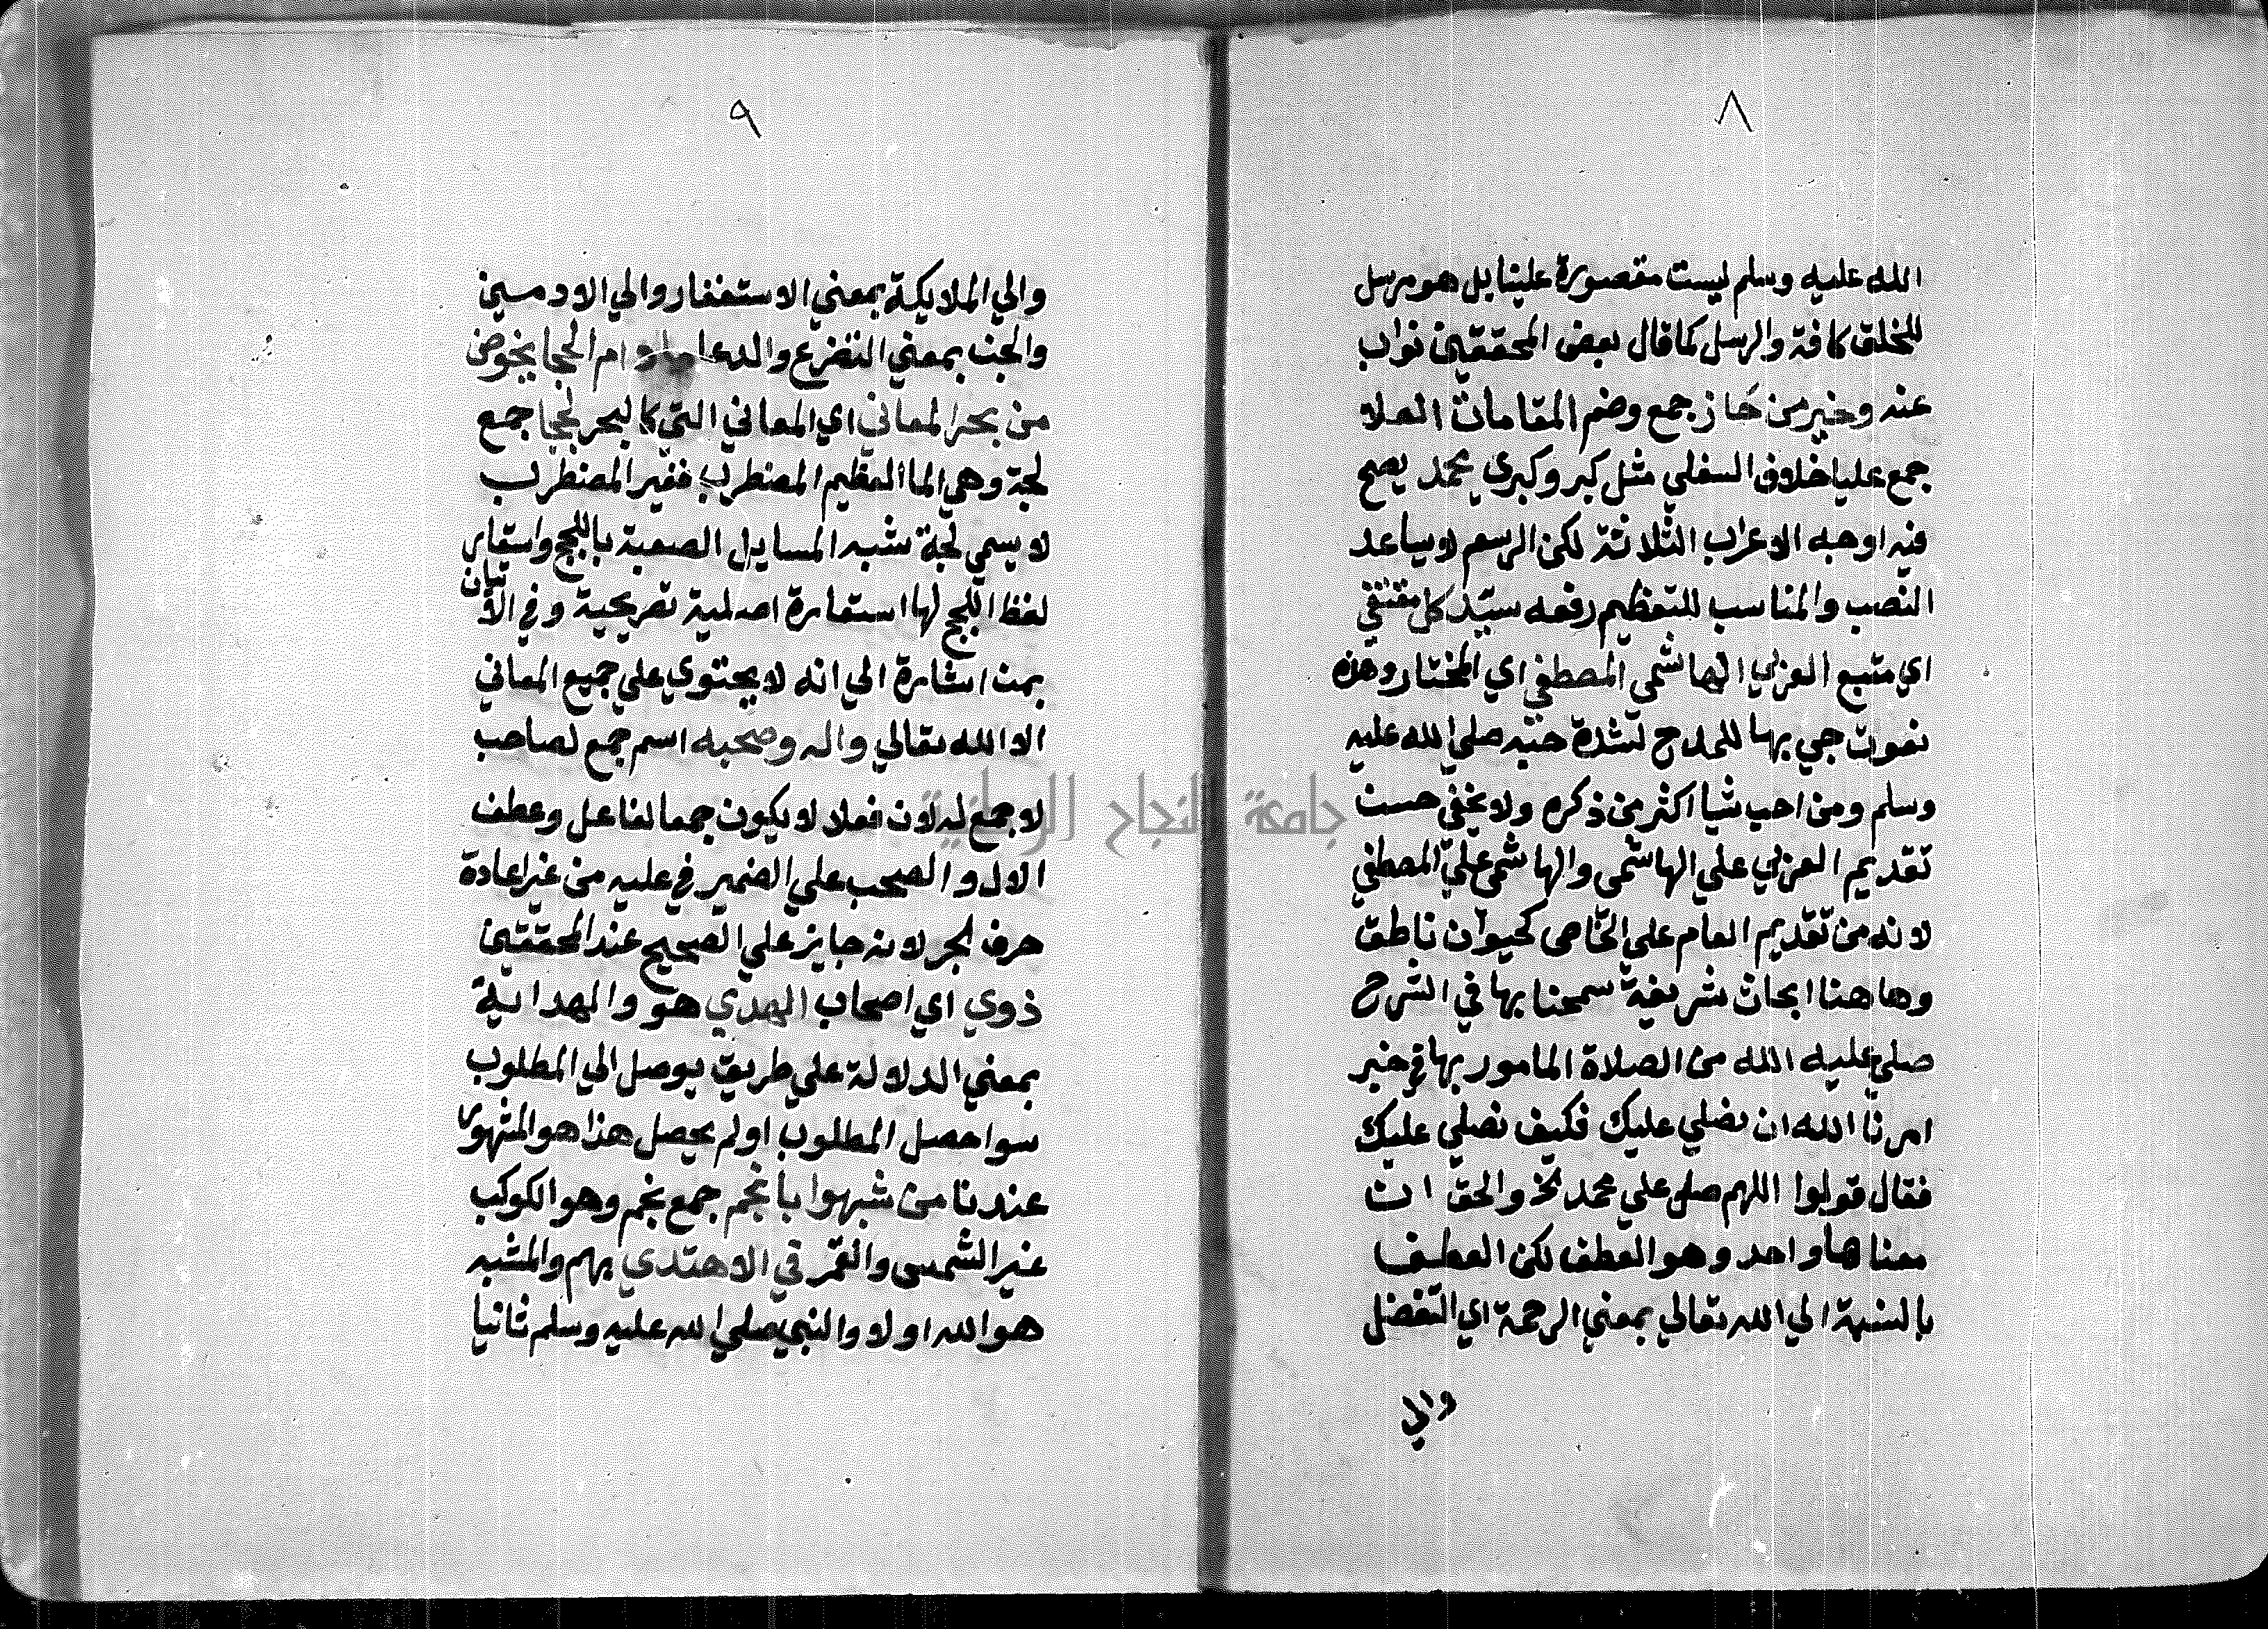 ٨
الله عليه وسلم ليست مقصورة علينا بل هو مرسل
للخلق كافة والرسل كما قال بعض المحققين نواب
عنه وخير من حاز جمع وضم المقامات العلا
جمع عليا خلاف السفلي مثل كبر وكبري محمد يصح
فيه اوجه الاعراب الثلاثة لكن الرسم لا يساعد
النصب والمناسب للتعظيم رفعه سيد كل مقتفي
اي متبع العربي الهاشمي المصطفي اي المختار وهذه
نعوت جي بها للمدح لشدة حبه صلي الله عليه
وسلم ومن احب شيا اكثر من ذكره ولا يخفي حسن
تقديم العربي علي الهاشمي والهاشمي علي المصطفي
لانه من تقديم العام علي الخاص كحيوان ناطق
وهاهنا ابحاث شريفة سمحنا بها في الشرح
صلي عليه الله من الصلاة المامور بها في خبر
امرنا الله ان نصلي عليك فكيف نصلي عليك
فقال قولوا اللهم صل علي محمد نخ والحق ان
معناها واحد وهو العطف لكن العطف
بالنسبة الي الله تعالي بمعني الرحمة اي التفضل
والي
٩
والي الملايكة بمعني الاستغفار والي الادمين
والجن بمعني التضرع والدعا ما دام الحجا يخوض
من بحر المعاني اي المعاني التي كالبحر لججا جمع
لجة وهي الما العظيم المضطرب فغير المضطرب
لا يسمي لجة شبه المسايل الصعبة باللجج واستعار
لفظ اللجج لها استعارة اصلية تصريحية وفي الاتيان
بمن اشارة الي انه لا يحتوي علي جميع المعاني
الا الله تعالي واله وصحبه اسم جمع لصاحب
لا جمع له لان فعلا لا يكون جمعا لفاعل وعطف
الال والصحب علي الضمير في عليه من غير اعادة
حرف الجر لانه جايز علي الصحيح عند المحققين
ذوي اي اصحاب الهدي هو والهداية
بمعني الدلالة علي طريق يوصل الي المطلوب
سوا حصل المطلوب اولم يحصل هذا هو المشهور
عندنا من شبهوا بانجم جمع نجم وهو الكوكب
غير الشمس والقمر في الاهتدي بهم والمشبه
هو الله اولا والنبي صلي الله عليه وسلم ثانيا
جامعة النجاح الوطنية